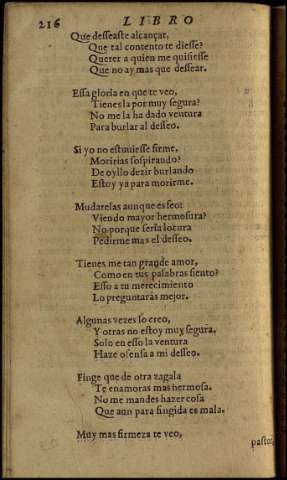 216 LIBRO
Que desseaste alcançar,
Que tal contento te diesse?
Querer a quien me quisiesse
Que no ay mas que dessear.
Essa gloria en que te veo,
Tienesla por muy segura?
No me la ha dado ventura
Para burlar al desseo.
Si yo no estuuiesse firme,
Moririas sospirando?
De oyllo dezir burlando
Estoy ya para morirme.
Mudarias aunque es feo:
Viendo mayor hermosura?
No porque seria locura
Pedirme mas el desseo.
Tienes me tan grande amor,
Como en tus palabras siento?
Esso a tu merecimiento
Lo preguntaras mejor.
Algunas vezes lo creo,
Y otras no estoy muy segura,
Solo en esso la ventura
Haze ofensa a mi desseo.
Finge que de otra zagala
Te enamoras mas hermosa.
No me mandes hazer cosa
Que aun para fingida es mala.
Muy mas firmeza te veo,
pastor,